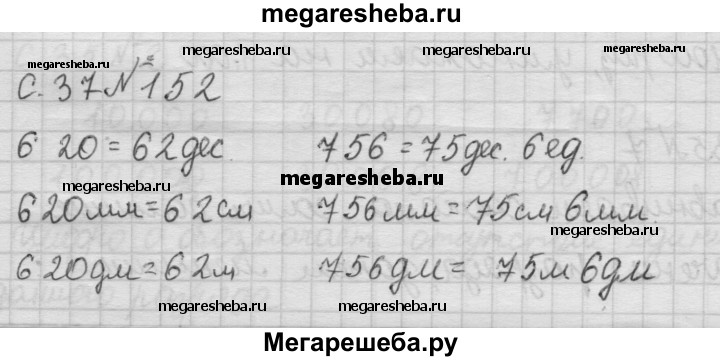 megaresheba.ru
megaresheba.ru
megaresheba.ru
с. 37 № 152
6 20 = 62 дес. 756 = 75 дес. 6 ед.
megaresheba.ru
megaresheba.ru
620 мм = 62 см 756 мм = 75 см 6 мм.
megaresheba.ru
620 дм = 62 м 756 дм = 75 м 6 дм
megaresheba.ru
megaresheba.ru
Мегарешеба.ру